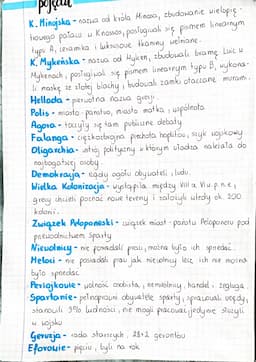 pojęcia
K. Minojska - nazwa od króla Minosa, zbudowanie wielopię-
trowego pałacu w Knossos, posługiwali się pismem linearnym
typu A, ceramika i luksusowe tkaniny wełniane.
K. Mykeńska - nazwa od Myken, zbudowali bramę Lwic w
Mykenach, posługiwali się pismem linearnym typu B, wykona-
li maskę ze złotej blachy, budowali zamki otaczane murami.
Hellada - pierwotna nazwa grecji
Polis - miasto-państwo, miasto matka, wspólnota
Agora - toczyły się tam publiczne debaty
Falanga - ciężkozbrojna piechota hoplitów, szyk wojskowy
Oligarchia - ustrój polityczny w którym władza należała do
najbogatszej osoby
Demokracja - rządy ogółu obywateli, ludu
Wielka Kolonizacja - wystąpiła między VIII a VI w. p.n.e,
grecy chcieli poznać nowe tereny i założyli wtedy ok. 200
kolonii.
Związek Peloponeski - związek miast-państw Peloponezu pod
przewodnictwem Sparty
Niewolnicy - nie posiadali praw, można było ich sprzedać.
Heloci - nie posiadali praw jak niewolnicy lecz ich nie można
było sprzedać
Periojkowie - wolność osobista, rzemiosło, handel, żegluga,
Spartanie - pełnoprawni obywatele sparty, sprawowali urzędy,
stanowili 9% ludności, nie mogli pracować, jedynie służyli
w wojsku
Geruzja - rada starszych, 28+2 gerontów
Eforowie - pięciu, byli na rok